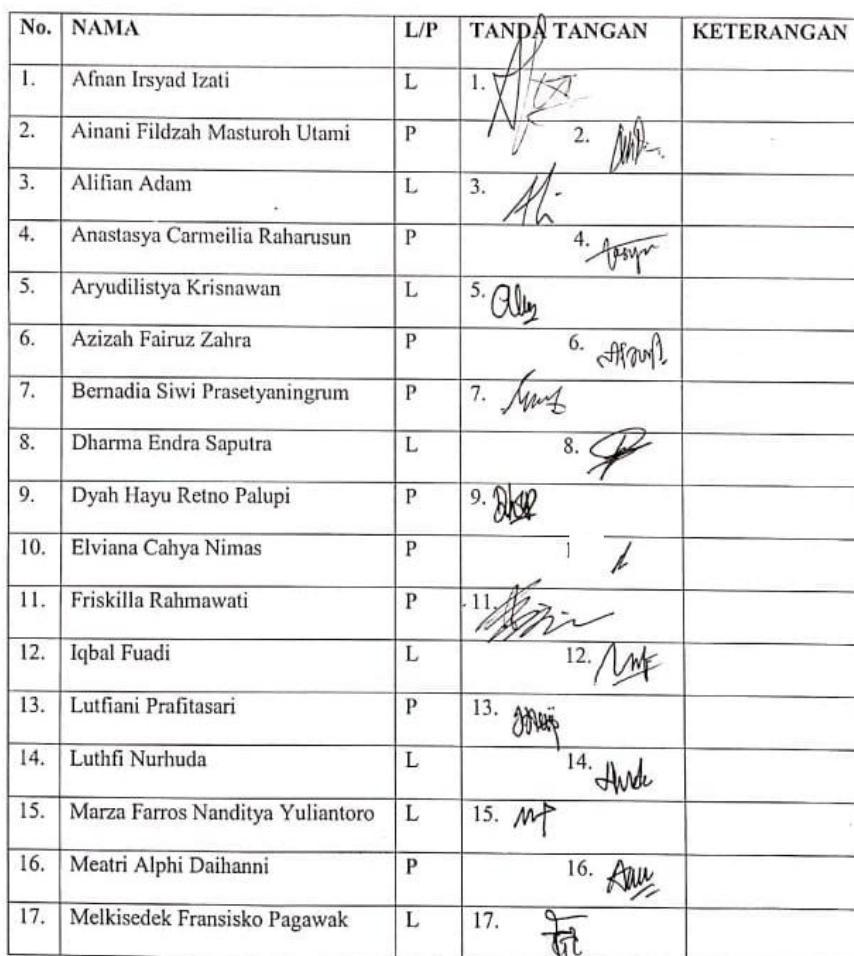 No. NAMA L/P TANDA TANGAN KETERANGAN
1. Afnan Irsyad Izati L 1.
2. Ainani Fildzah Masturoh Utami P 2.
3. Alifian Adam L 3.
4. Anastasya Carmeilia Raharusun P 4.
5. Aryudilistya Krisnawan L 5.
6. Azizah Fairuz Zahra P 6.
7. Bernadia Siwi Prasetyaningrum P 7.
8. Dharma Endra Saputra L 8.
9. Dyah Hayu Retno Palupi P 9.
10. Elviana Cahya Nimas P 1
11. Friskilla Rahmawati P 11.
12. Iqbal Fuadi L 12.
13. Lutfiani Prafitasari P 13.
14. Luthfi Nurhuda L 14.
15. Marza Farros Nanditya Yuliantoro L 15.
16. Meatri Alphi Daihanni P 16.
17. Melkisedek Fransisko Pagawak L 17.